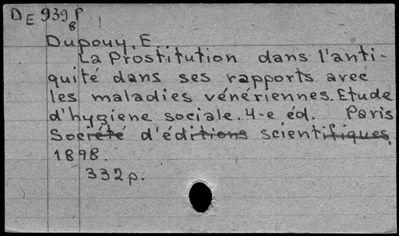 DE 939 P
8
Dupouy, E.
La Prostitution dans l'anti-
quité dans ses rapports avec
les maladies vénériennes. Etude
d'hygiene sociale. 4-e éd. Paris
Société d'éditions scientifiques,
1898.
332 p.